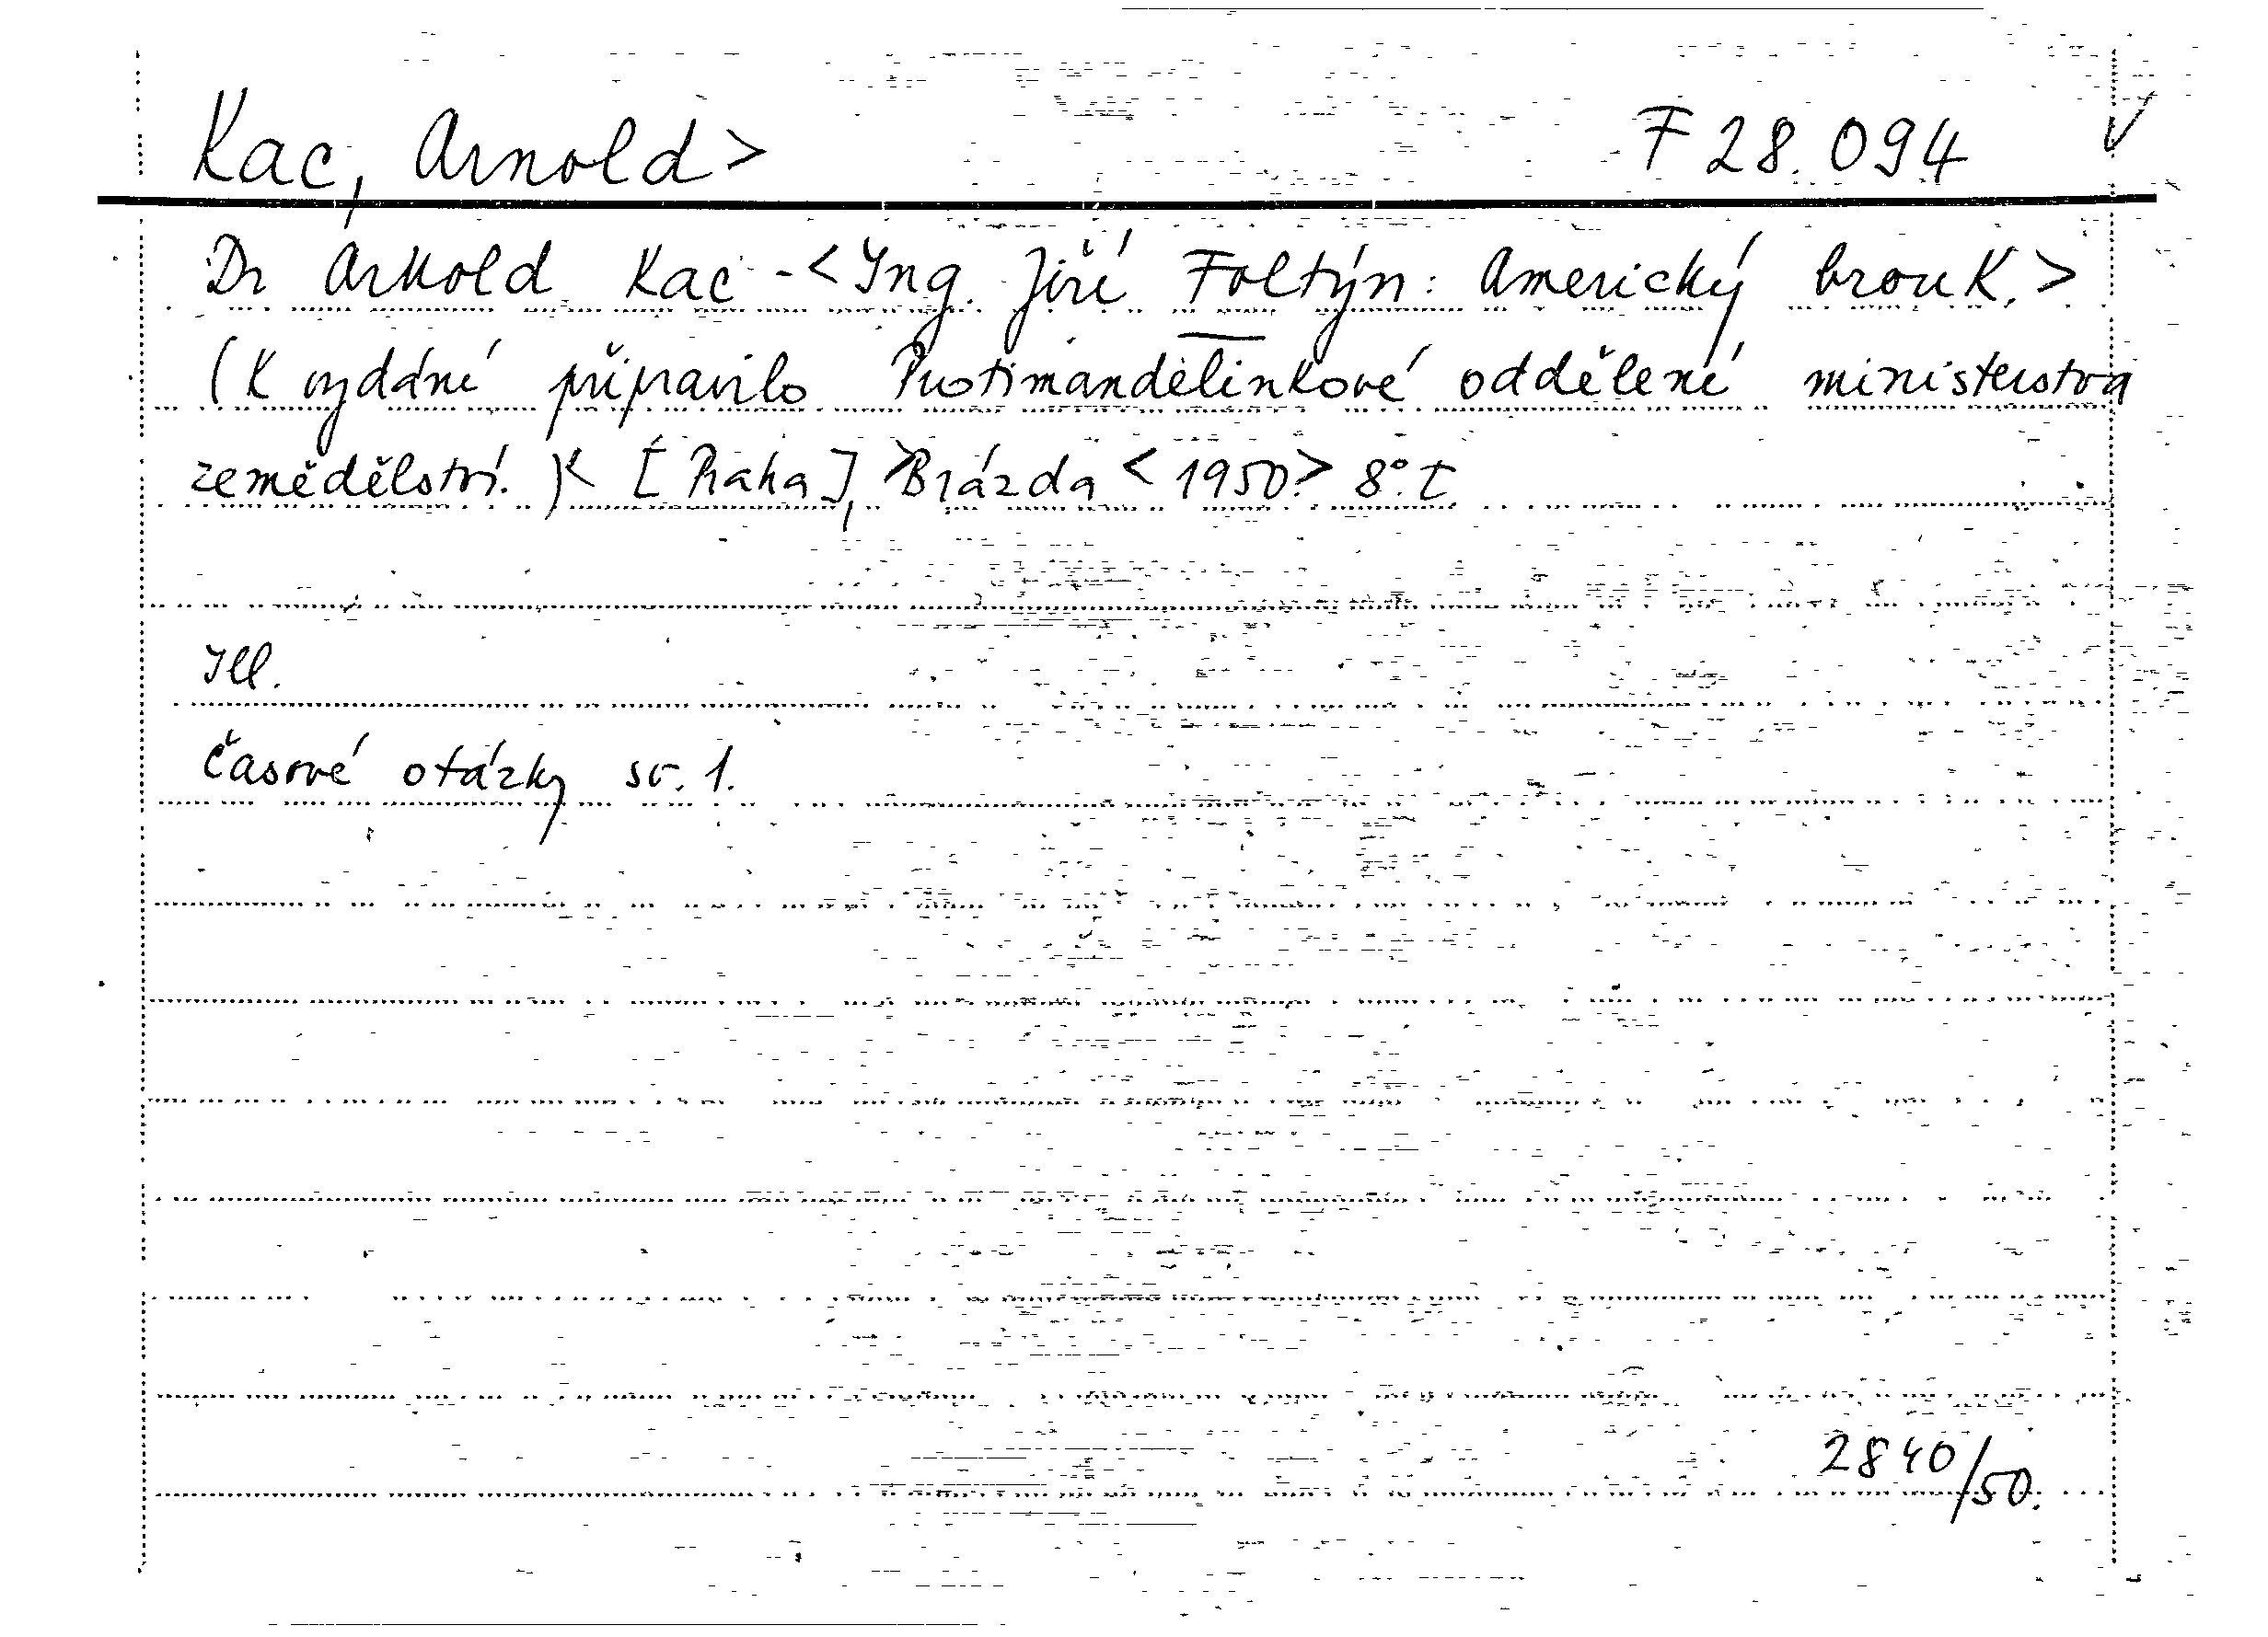 Kac, Arnold> F 28.094 ✓
Dr Arnold Kac - <Ing. Jiří Foltýn: Americký brouk.>
(K vydání připravilo Protimandelinkové oddělení ministerstva
zemědělství.)< [Praha], >Brázda <1950.> 8°. t.
Ill.
Časové otázky sv. 1.
2840/50.